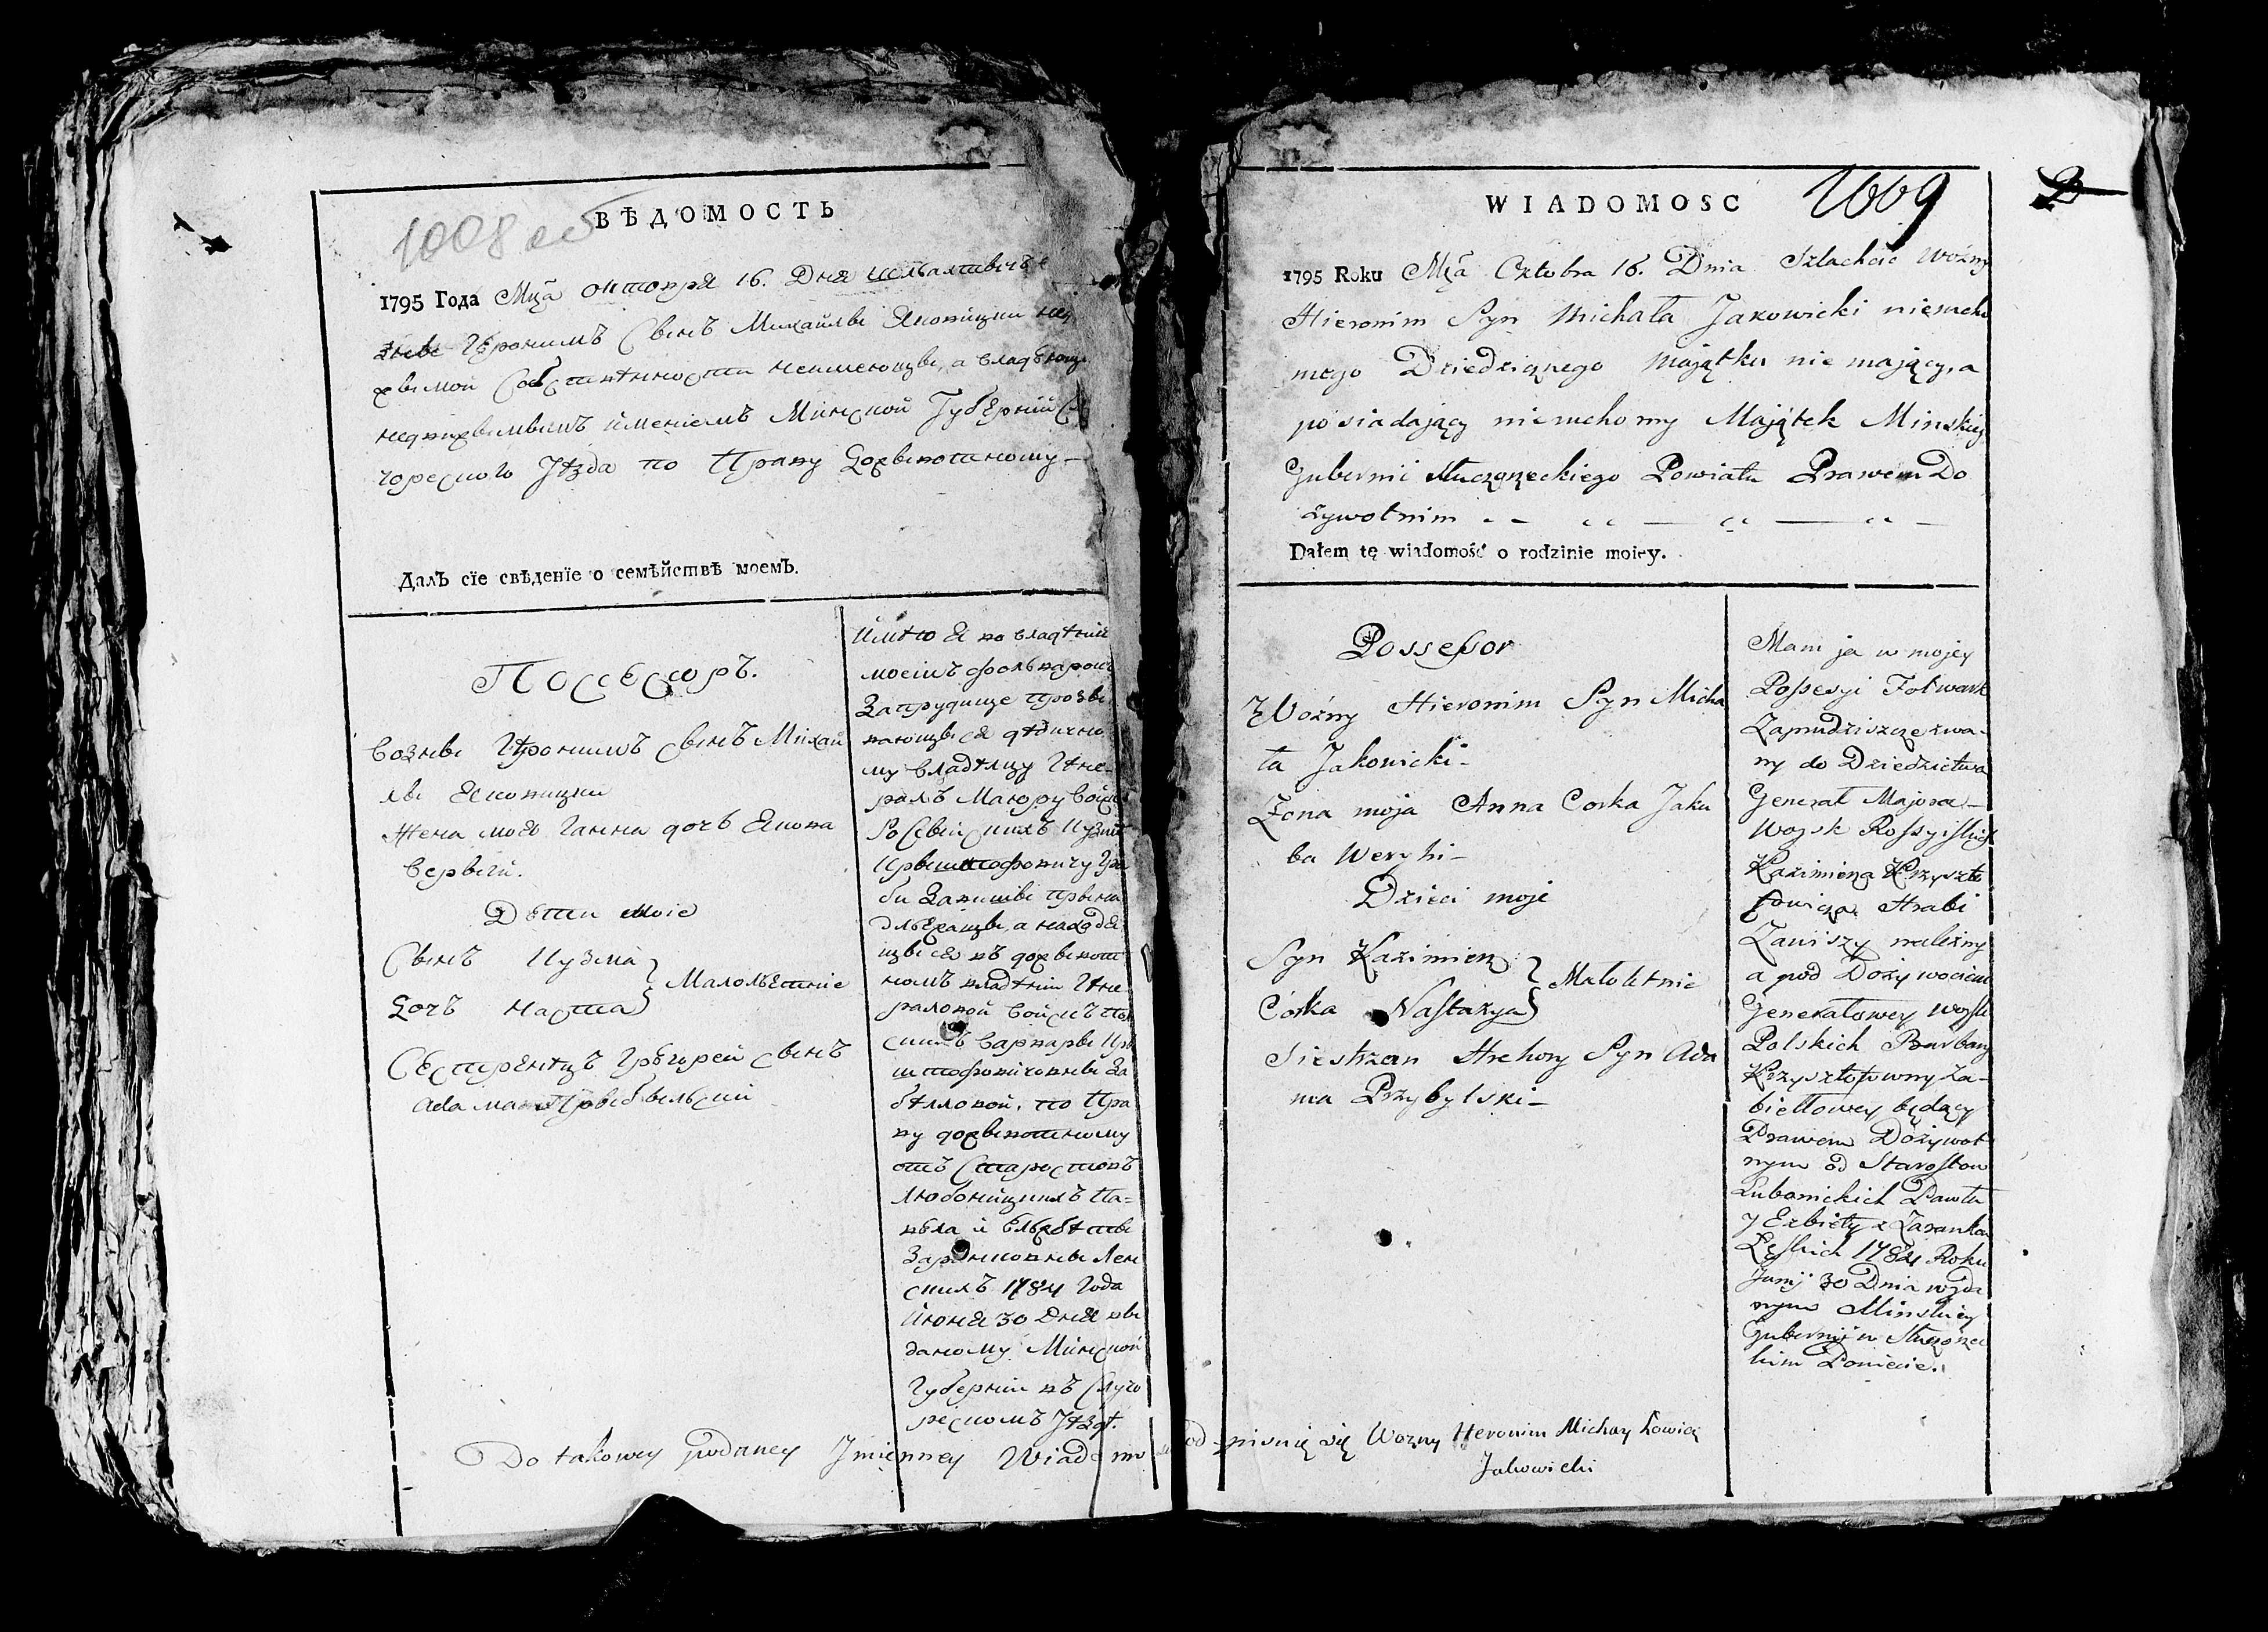 1008 об
ВѢДОМОСТЬ
1795 Года Мца октобря 16. Дня шляхтичъ
возны Геронимъ Сынъ Михайлы Яковицки нед
жвимой Собственности неимеющы, а владѣющы
недвижвимымъ имениемъ Минской Губерніи
горецкого Уѣзда по Праву Дожывотному
Далъ сїе свѣденїе о семѣйствѣ моемъ.
Поссесоръ.
Возны Геронимъ сынъ Михай
лы Яковицки
Жена моя Ганна дочъ Якова
Верыги.
Дѣти моіе
Сынъ Кузма
Дочъ Настa
Малолѣтніе
Сестренецъ Грѣгорей сынъ
Adaма Прыбыльский
Имѣю я во владѣніи
моемъ фольварокъ
Запрудище прозы
вающыся дѣдично
му владѣлцу Гене-
ралъ Маюру Войскъ
Росыйскихъ Кузмѣ
Крыштофовичу Гра
би Завишы прына
длежащы, а находя
щыся въ дожывот
номъ владѣніи Гене
раловой Войскъ пол
скихъ Варвары Кры
штофовичовны За
бѣлловой, по Пра
ву дожывотному
отъ Старостовъ
Любоницкихъ Па-
вела и Ельжбѣты
Заранковны Лен
скихъ 1784 Года
Июня 30 Дня вы
даному Минской
Губерніи въ Слуцо
рецкомъ Уѣздѣ.
WIADOMOSC
1009
1795 Roku Mca Oktobra 16. Dnia Szlachcic Woźny
Hieronim Syn Michała Jakowicki nieruchо
mego Dziedzicznego Majątku nie mający, a
posiadający nieruchomy Majątek Minskiey
Gubernii Słuczoreckiego Powiatu Prawem Do
żywotnim
Dałem tę wiadomość o rodzinie moiey.
Possessor
Woźny Hieronim Syn Micha
ła Jakowicki
Zona moja Anna Corka Jaku
ba Weryhi
Dzieci moje
Syn Kazimierz
Córka Nastazya
Małoletnie
Siestrzan Hrehory Syn Ada
ma Przybylski
Mam ja w mojey
Possesyi Folwark
Zaprudziszcze zwa-
ny do Dziedzictwa
Generał Majora
Wojsk Rossyiskich
Kazimierza Krzyszto
fowicza Hrabi
Zawiszy należny
a pod Dożywociem
Generałowey woysk
Polskich Barbary
Krzysztofowny Za-
biełłowey będący
Prawem Dożywot
nym od Starostow
Lubonickich Pawła
y Elzbiety z Zaranków
Lęskich 1784 Roku
Junij 30 Dnia wyda
nym Minskiey
Gubernii w Słuczorec
kim Powiecie.
Do takowey podaney Imienney Wiadomo pod-pisuię się Wozny Heronim Michayłowicz
Jakowicki